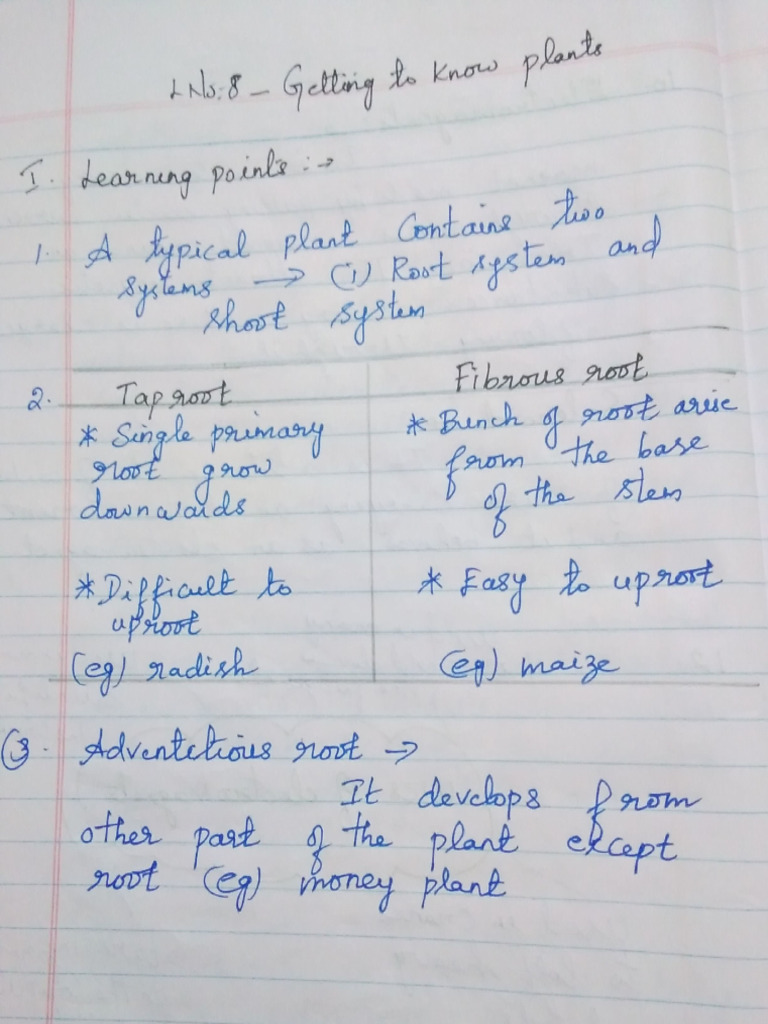 LNo:8 - Getting to know plants
I. Learning points :→
1. A typical plant contains two
systems → (i) Root system and
shoot system
2. Tap root
* Single primary
root grow
downwards
* Difficult to
uproot
(eg) radish
Fibrous root
* Bunch of root arise
from the base
of the stem
* Easy to uproot
(eg) maize
3. Adventetious root →
It develops from
other part of the plant except
root (eg) money plant